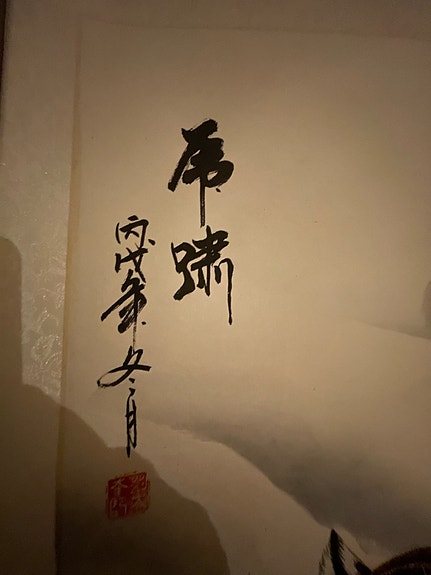 虎啸
丙戌年冬月